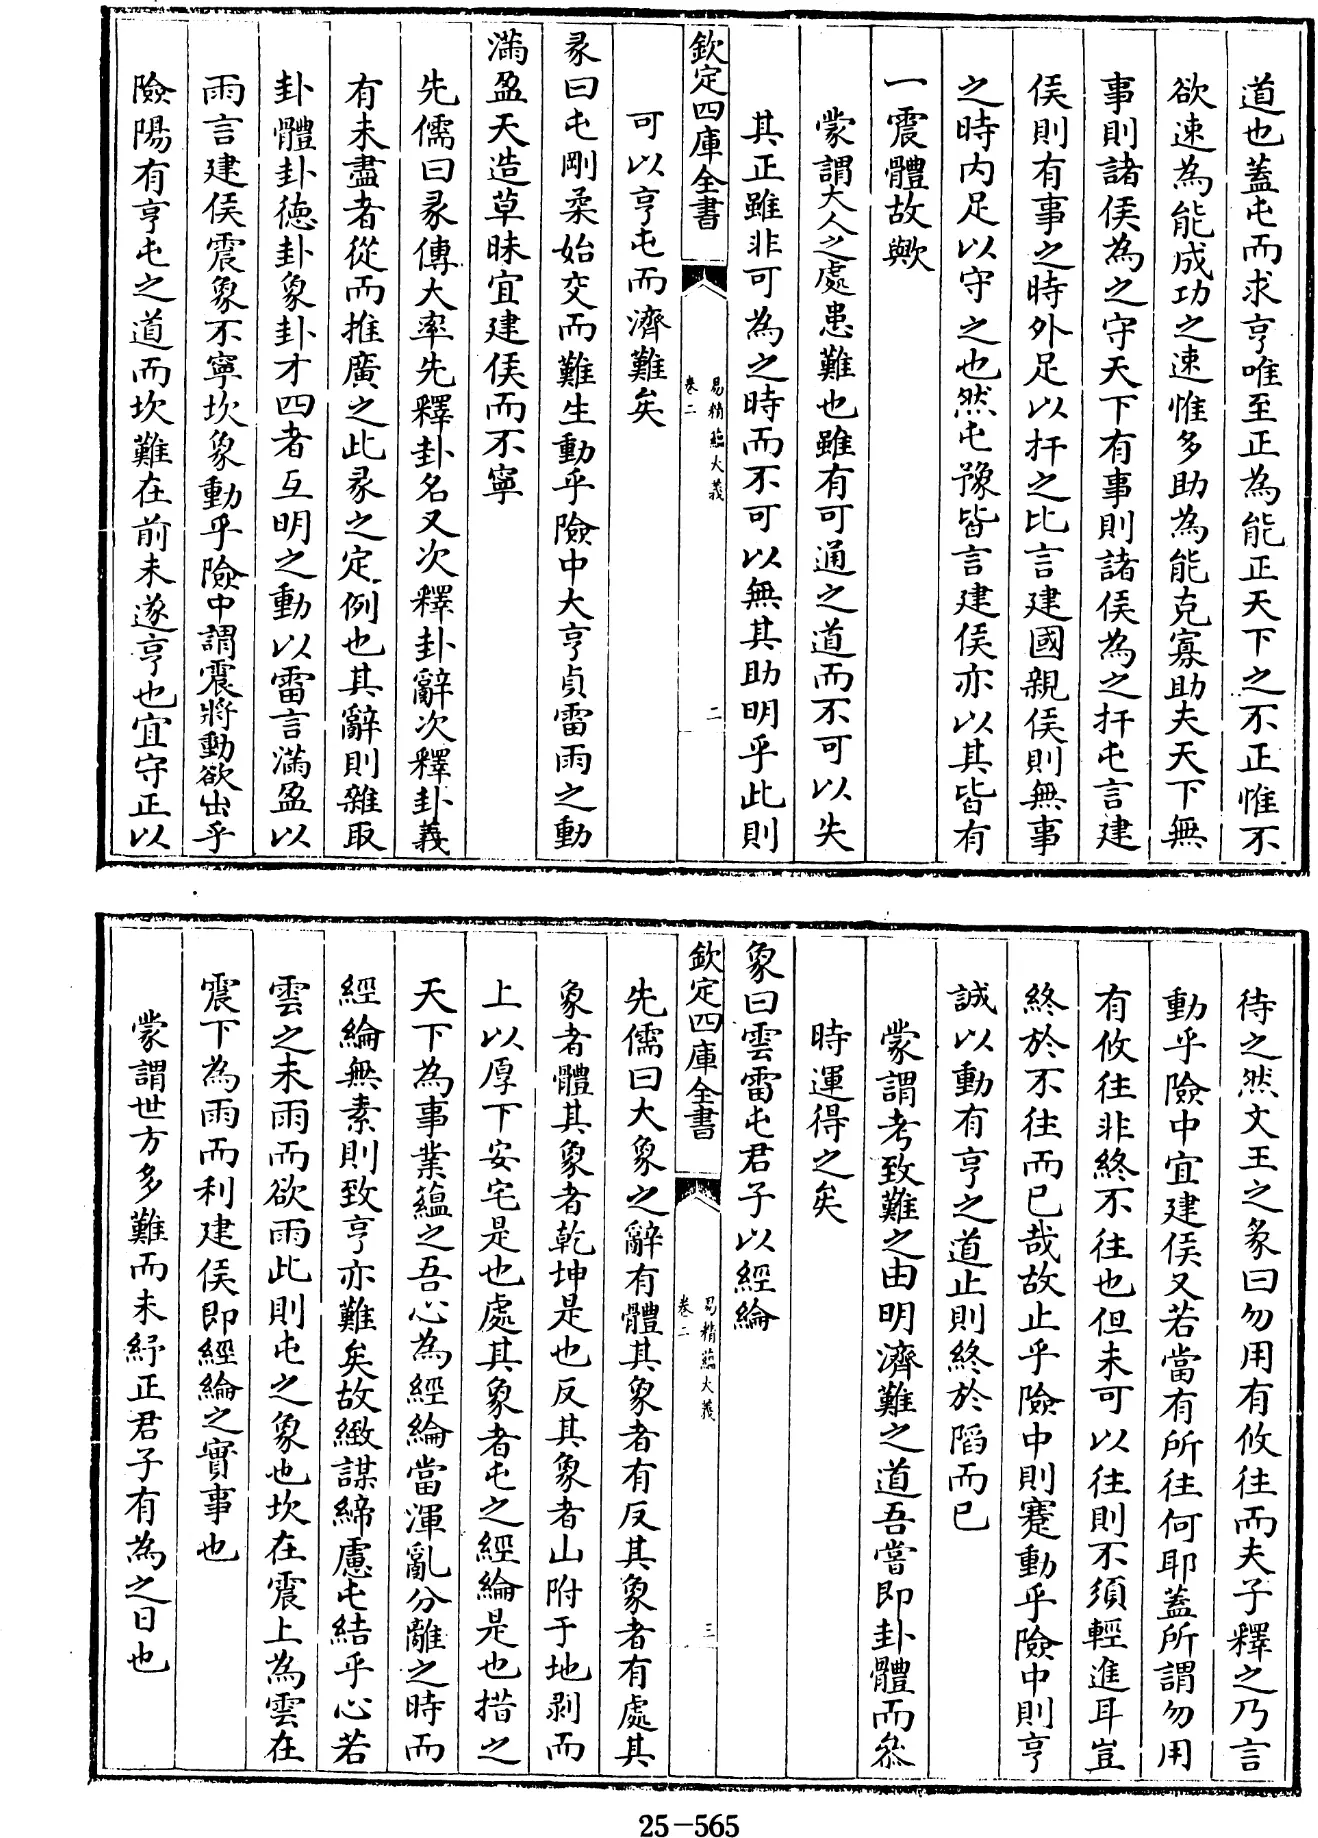 道也蓋屯而求亨唯至正為能正天下之不正惟不
欲速為能成功之速惟多助為能克寡助夫天下無
事則諸侯為之守天下有事則諸侯為之扞屯言建
侯則有事之時外足以扞之比言建國親侯則無事
之時内足以守之也然屯豫皆言建侯亦以其皆有
一震體故歟
蒙謂大人之處患難也雖有可通之道而不可以失
其正雖非可為之時而不可以無其助明乎此則
欽定四庫全書
易精蘊大義
卷二
二
可以亨屯而濟難矣
彖曰屯剛柔始交而難生動乎險中大亨貞雷雨之動
滿盈天造草昧宜建侯而不寧
先儒曰彖傳大率先釋卦名又次釋卦辭次釋卦義
有未盡者從而推廣之此彖之定例也其辭則雜取
卦體卦徳卦象卦才四者互明之動以雷言滿盈以
雨言建侯震象不寧坎象動乎險中謂震將動欲出乎
險陽有亨屯之道而坎難在前未遂亨也宜守正以
待之然文王之彖曰勿用有攸往而夫子釋之乃言
動乎險中宜建侯又若當有所往何耶蓋所謂勿用
有攸往非終不往也但未可以往則不須輕進耳豈
終於不往而已哉故止乎險中則蹇動乎險中則亨
誠以動有亨之道止則終於陷而已
蒙謂考致難之由明濟難之道吾嘗即卦體而叅
時運得之矣
象曰雲雷屯君子以經綸
欽定四庫全書
易精蘊大義
卷二
三
先儒曰大象之辭有體其象者有反其象者有處其
象者體其象者乾坤是也反其象者山附于地剥而
上以厚下安宅是也處其象者屯之經綸是也措之
天下為事業蘊之吾心為經綸當渾亂分離之時而
經綸無素則致亨亦難矣故緻謀締慮屯結乎心若
雲之未雨而欲雨此則屯之象也坎在震上為雲在
震下為雨而利建侯即經綸之實事也
蒙謂世方多難而未紓正君子有為之日也
25-565